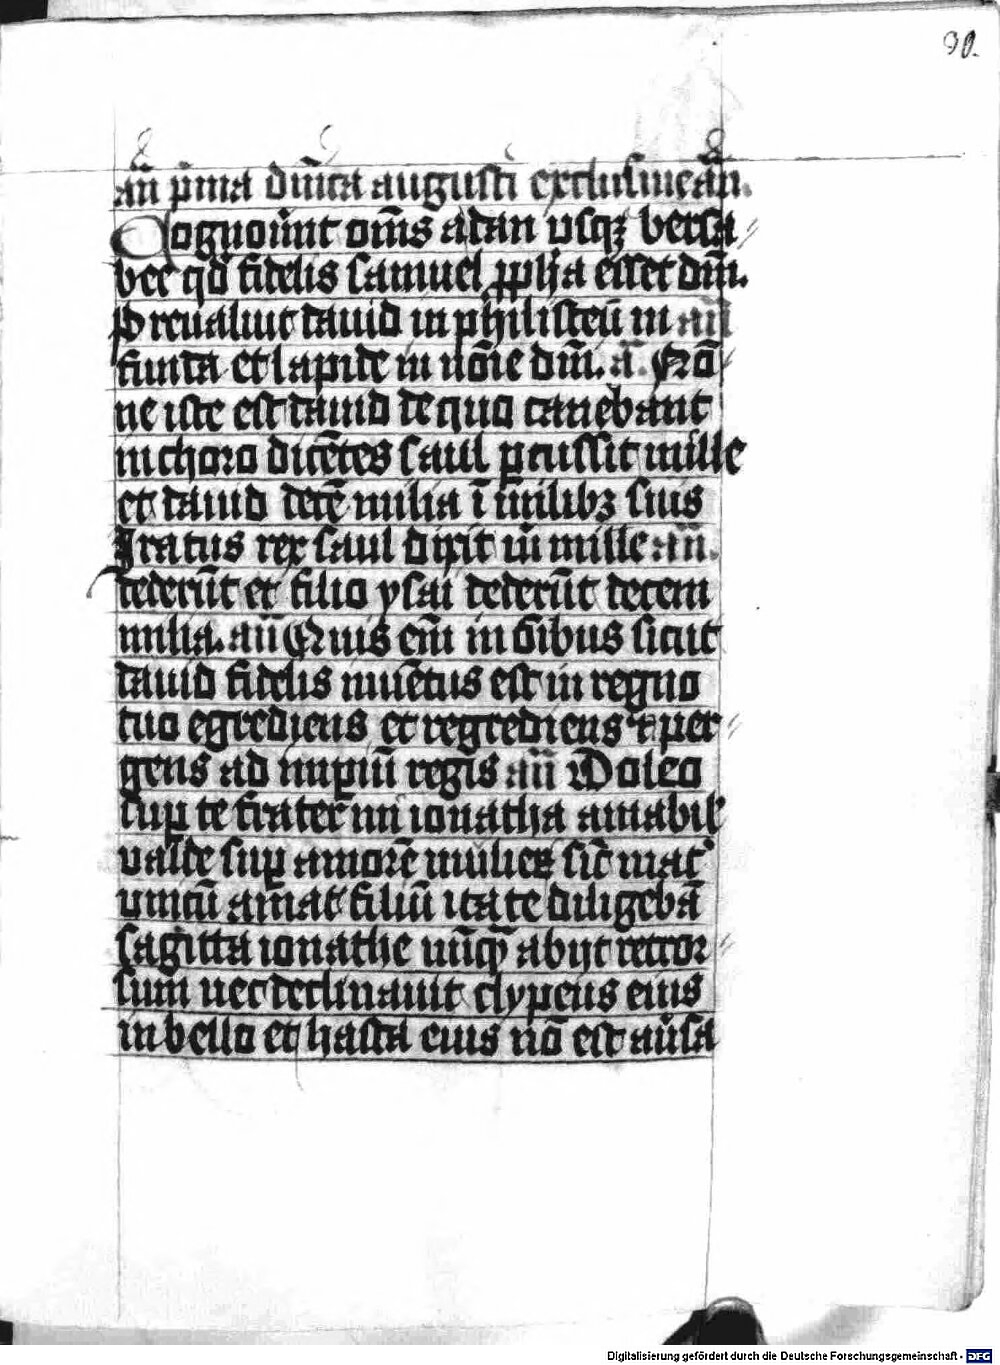 90.
añ p̄ma dñica augusti exclusiue añ.
Cognouer̄nt om̄s a dan usqꝫ bersa
bee qd̄ fidelis samuel ꝓph̄a esset dn̄i.
Preualuit dauid in philisteū in añ
funda et lapide in nōie dn̄i. a. Nō
ne iste est dauid de quo canebant
in choro dicētes saul ꝑcussit mille
et dauid decē milia ī milibꝫ suis
Iratus rex saul dixit m̄ mille añ.
dederūt et filio ysai dederūt decem
milia. añ Quis em̄ in oībus sicut
dauid fidelis inuētus est in regno
tuo egrediens et regrediens ⁊ per
gens ad impiū regis añ Doleo
suꝑ te frater mi ionatha amabil'
valde suꝑ amorē mulieꝝ sic̄ mat'
vnicū amat filiū ita te diligebā
sagitta ionathe nūqꝫ abijt retror
sum nec declinauit clypeus eius
in bello et hasta eius nō est au'sa
Digitalisierung gefördert durch die Deutsche Forschungsgemeinschaft - DFG